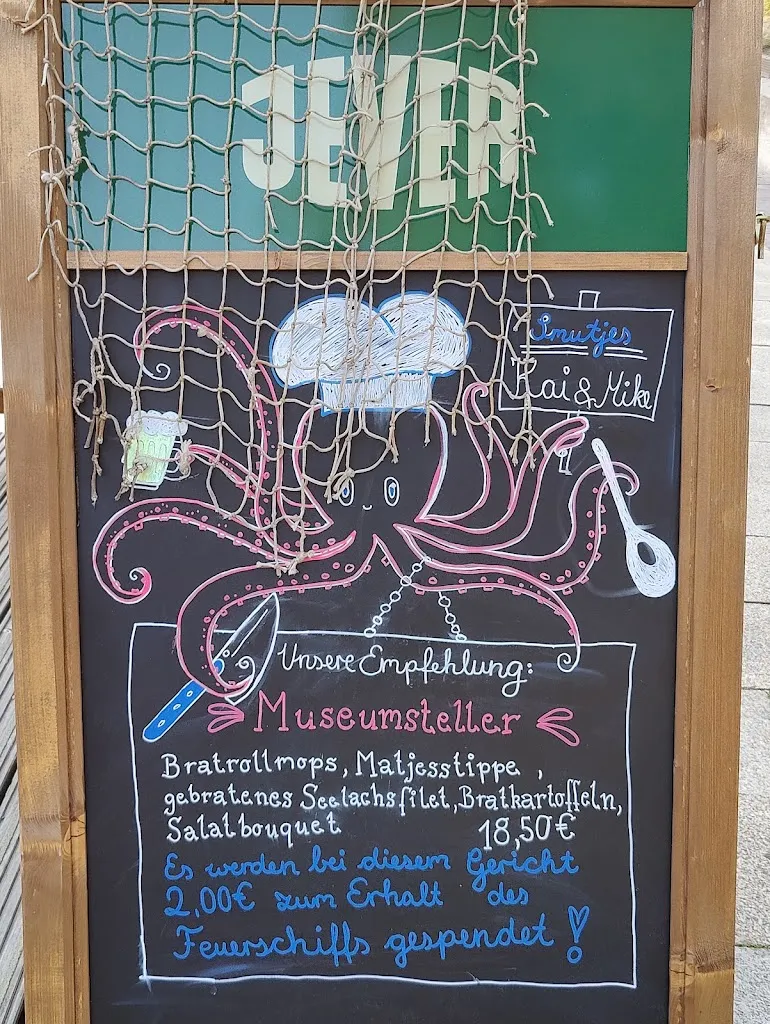 JEVER
Smutjes
Kai & Mike
Unsere Empfehlung:
Museumsteller
Bratrollmops, Matjesstippe ,
gebratenes Seelachsfilet, Bratkartoffeln,
Salatbouquet 18,50€
Es werden bei diesem Gericht
2,00€ zum Erhalt des
Feuerschiffs gespendet !